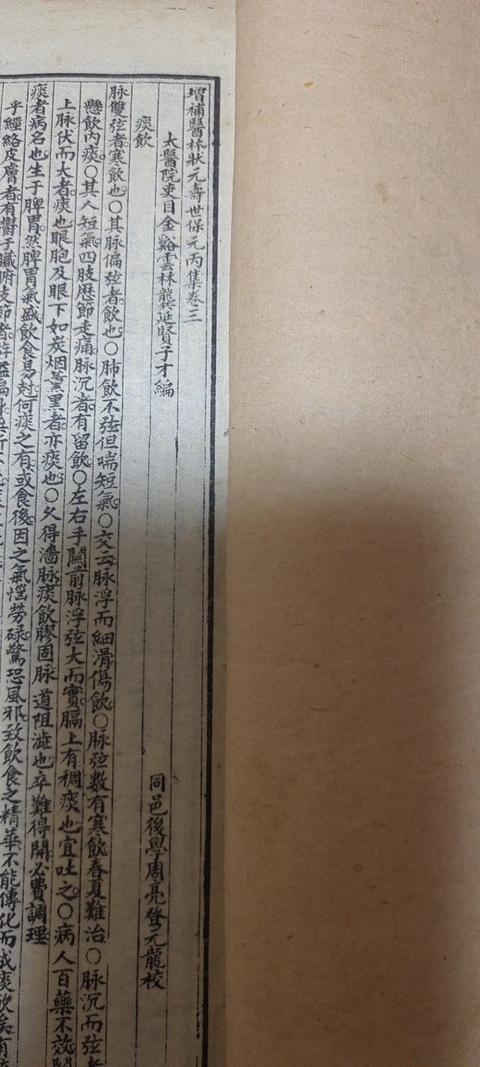 增補醫林狀元壽世保元丙集卷三
太醫院吏目金谿雲林龔延賢子才編
同邑後學周亮登元龍校
痰飲
脉雙弦者寒飲也○其脉偏弦者飲也○肺飲不弦但喘短氣○又云脉浮而細滑傷飲○脉弦數有寒飲春夏難治○脉沉而弦者
懸飲內痰○其人短氣四肢歷節走痛脉沉者有留飲○左右手關前脉浮弦大而實膈上有稠痰也宜吐之○病人百藥不效關
上脉伏而大者痰也眼胞及眼下如炭烟薰黑者亦痰也○久得濇脉痰飲膠固脉道阻澁也卒難得開必費調理
痰者病名也生于脾胃然脾胃氣盛飲食易尅何痰之有或食後因之氣惱勞碌驚恐風邪致飲食之精華不能傳化而成痰飲矣有
乎經絡皮膚者有鬱于臟腑支節者